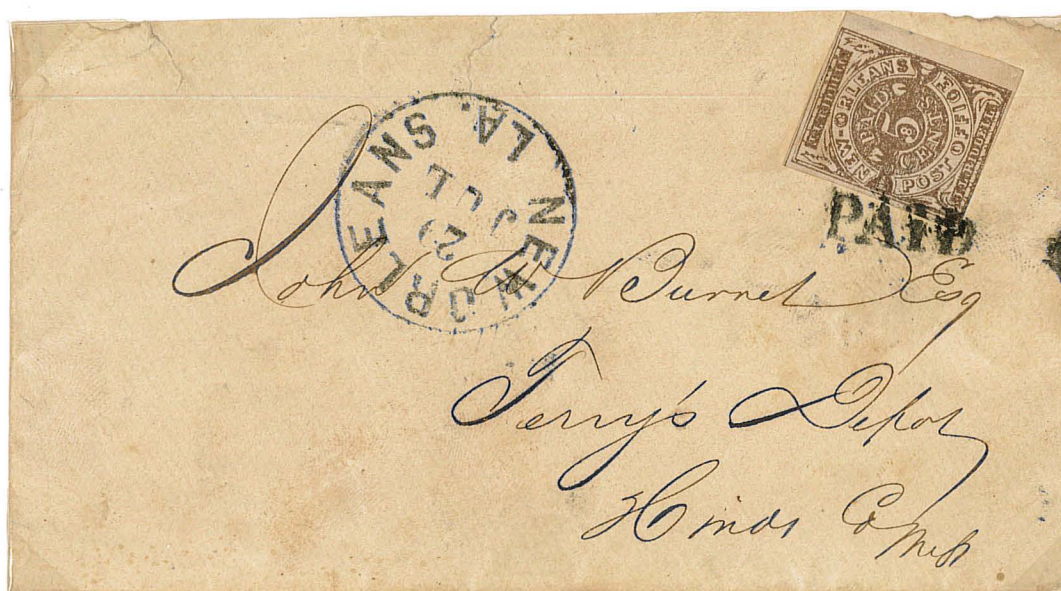 NEW ORLEANS. LA.
29
JUL
J. L. RIDDELL
NEW-ORLEANS
POST OFFICE
PAID
5
CENTS
J. L. RIDDELL
PAID
John W Burnet Esq
Terry's Depot
Hinds Co Miss